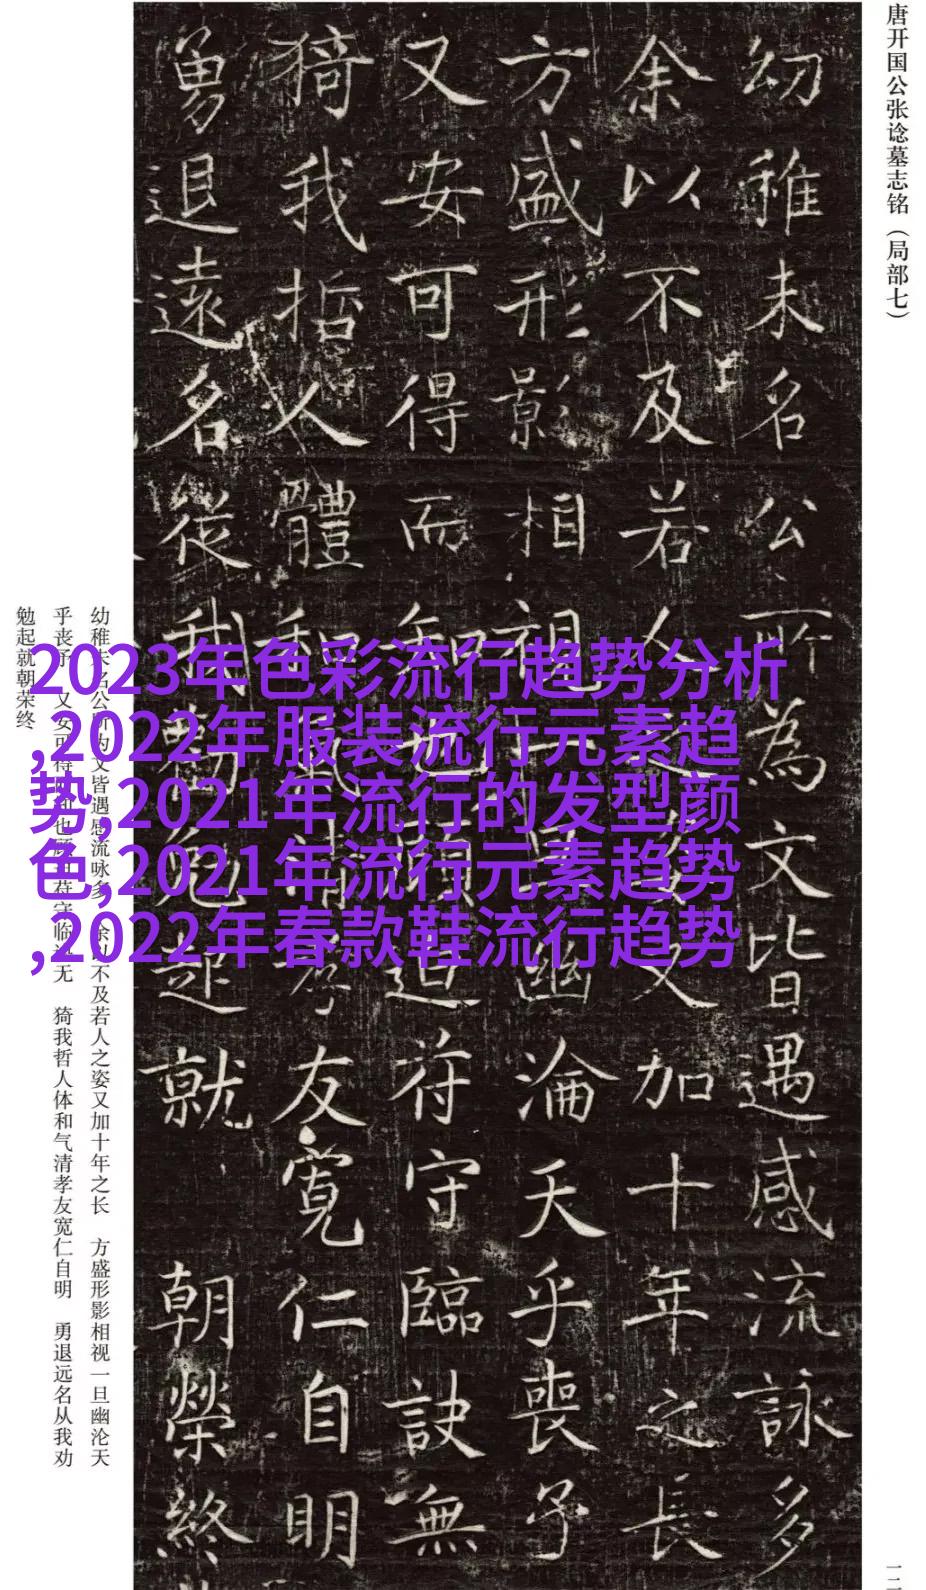 唐开国公张谂墓志铭（局部七）
幼稚未名公所為文皆遇感流詠多
余以不及若人之姿又加十年之長
方盛形影相視一旦幽淪天乎喪予
又安可得而知也顧迫符守臨訣無
猗我哲人體和氣清孝友寬仁自明
勇退遠名從我勸勉起就 朝榮終
2023年色彩流行趋势分析
,2022年服装流行元素趋
势,2021年流行的发型颜
色,2021年流行元素趋势
,2022年春款鞋流行趋势
幼稚未名公所为文皆遇感流咏多 余以不及若人之姿又加十年之长 方盛形影相视一旦幽沦天
乎丧予 又安可得而知也顾迫符守临诀无 猗我哲人体和气清孝友宽仁自明 勇退远名从我劝
勉起就朝荣终
一二